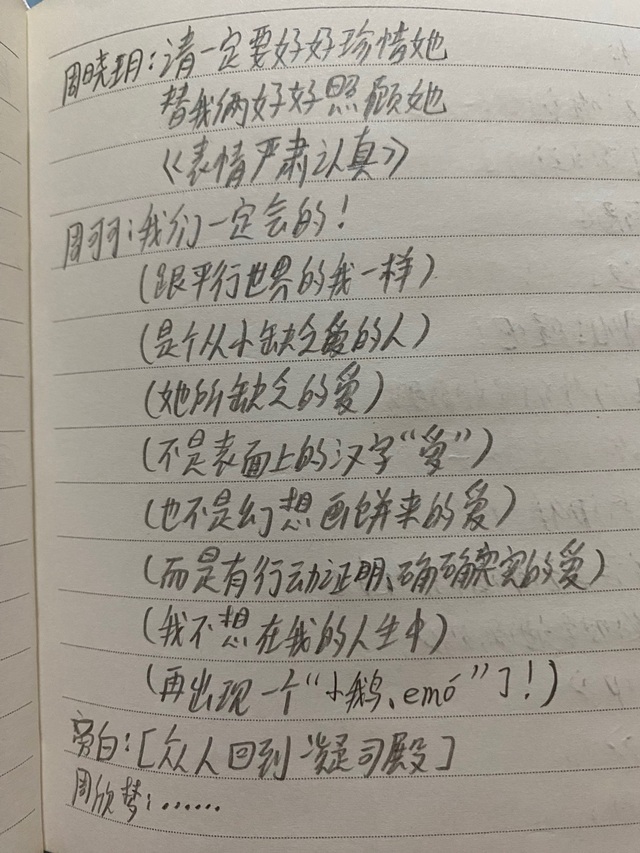 周晓玥：请一定要好好珍惜她
替我俩好好照顾她
《表情严肃认真》
周羽：我们一定会的！
(跟平行世界的我一样)
(是个从小缺乏爱的人)
(她所缺乏的爱)
(不是表面上的汉字“爱”)
(也不是幻想画饼来的爱)
(而是有行动证明、确确实实的爱)
(我不想在我的人生中)
(再出现一个“小鹅、emó”了！)
旁白：[众人回到凝司殿]
周欣梦：……